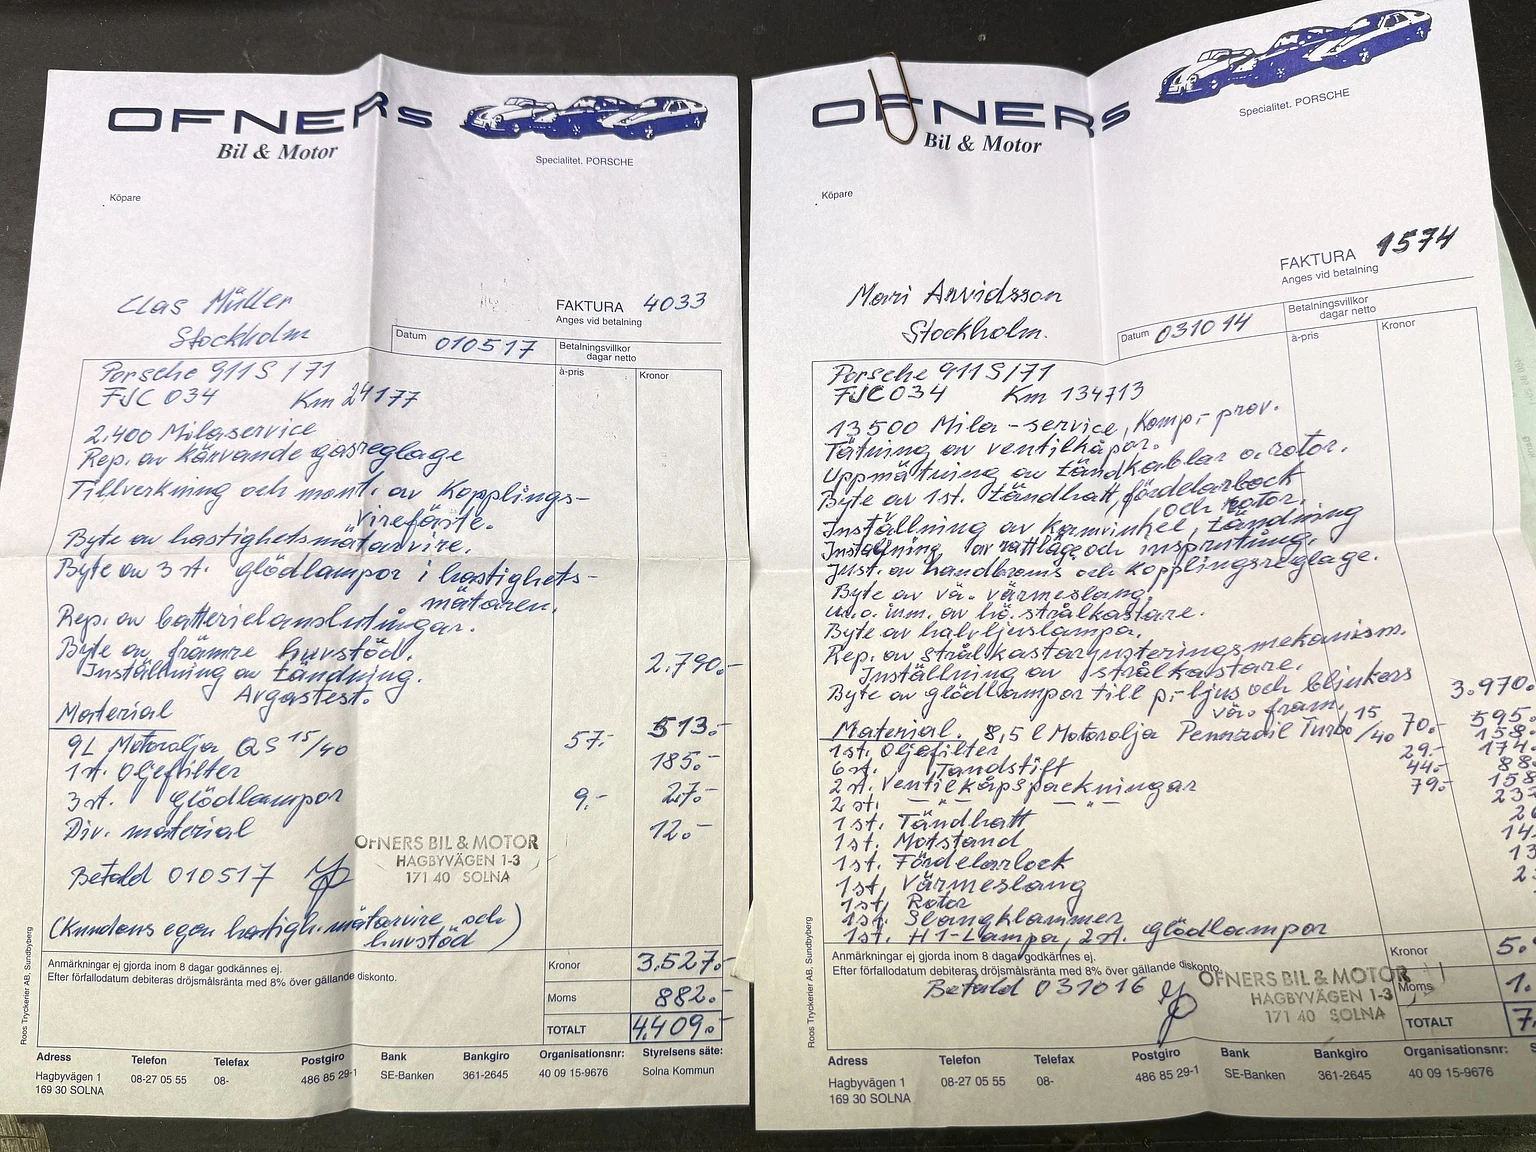 OFNERS
Bil & Motor
Specialitet. PORSCHE
Köpare
Clas Müller
Stockholm
FAKTURA 4033
Anges vid betalning
Datum 010517
Betalningsvillkor
dagar netto
Porsche 911 S / 71
à-pris
Kronor
FJC 034 Km 24177
2.400 Milaservice
Rep. av kärvande gasreglage
Tillverkning och mont. av Kopplings-
virefäste.
Byte av hastighetsmätarvire.
Byte av 3 st. glödlampor i hastighets-
mätaren.
Rep. av batterielanslutningar.
Byte av främre huvstöd.
Inställning av tändning. 2.790.-
Avgastest.
Material
9L Motorolja QS 15/40 57.- 513.-
1 st. Oljefilter 185.-
3 st. Glödlampor 9.- 27.-
Div. material 12.-
OFNERS BIL & MOTOR
HAGBYVÄGEN 1-3
171 40 SOLNA
Betald 010517
(Kundens egen hastigh.mätarvire och
huvstöd)
Anmärkningar ej gjorda inom 8 dagar godkännes ej.
Efter förfallodatum debiteras dröjsmålsränta med 8% över gällande diskonto.
Kronor 3.527.-
Moms 882.-
TOTALT 4.409.-
Roos Tryckerier AB, Sundbyberg
Adress Telefon Telefax Postgiro Bank Bankgiro Organisationsnr: Styrelsens säte:
Hagbyvägen 1 08-27 05 55 08- 486 85 29-1 SE-Banken 361-2645 40 09 15-9676 Solna Kommun
169 30 SOLNA
OFNERS
Bil & Motor
Specialitet. PORSCHE
Köpare
Mari Arvidsson
Stockholm.
FAKTURA 1574
Anges vid betalning
Datum 031014
Betalningsvillkor
dagar netto
à-pris
Kronor
Porsche 911 S/71
FJC 034 Km 134713
13500 Mila-service, Komp.-prov.
Tätning av ventilkåpor.
Uppmätning av tändkablar o. rotor.
Byte av 1st. tändhatt, fördelarlock
och rotor.
Inställning av kamvinkel, tändning
Inställning av rattläge och insprutning.
Just. av handbroms och kopplingsreglage.
Byte av vä. värmeslang.
u.o. inm. av hö. strålkastare.
Byte av halvljuslampa.
Rep. av strålkastarjusteringsmekanism.
Inställning av strålkastare.
Byte av glödlampor till p.-ljus och blinkers
vä. fram. 3.970.
Material. 8,5 l Motorolja Pennzoil Turbo 15/40 70.- 595.
1st. Oljefilter 158.-
6 st. Tändstift 29.- 174.
2 st. Ventilkåpspackningar 44.- 88.
2 st. —"— —"— 79.- 158
1st. Tändhatt
1st. Motstand
1st. Fördelarlock
1st. Värmeslang
1st. Rotor
1st. Slangklammer
1st. H1-Lampa, 2 st. glödlampor
Anmärkningar ej gjorda inom 8 dagar godkännes ej.
Efter förfallodatum debiteras dröjsmålsränta med 8% över gällande diskonto.
Betald 031016
OFNERS BIL & MOTOR
HAGBYVÄGEN 1-3
171 40 SOLNA
Kronor 5.
Moms 1.
TOTALT 7.
Roos Tryckerier AB, Sundbyberg
Adress Telefon Telefax Postgiro Bank Bankgiro Organisationsnr:
Hagbyvägen 1 08-27 05 55 08- 486 85 29-1 SE-Banken 361-2645 40 09 15-9676
169 30 SOLNA